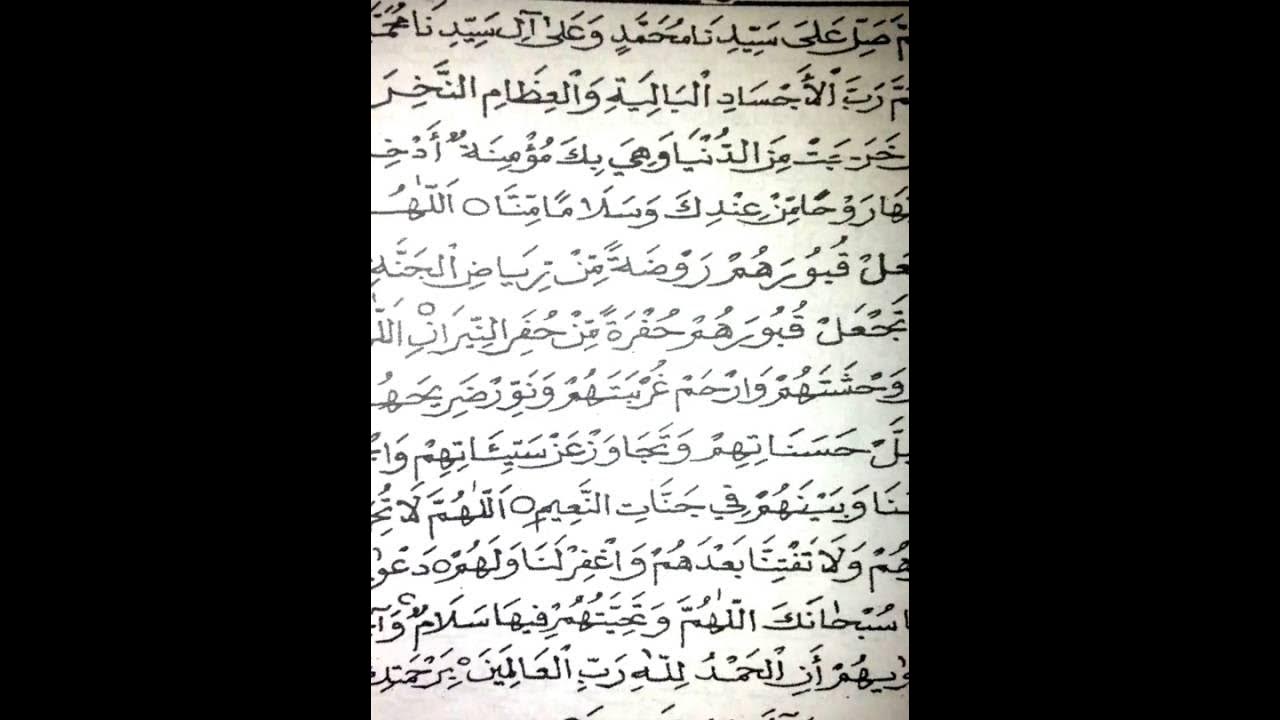 صَلِّ عَلَى سَيِّدِنَا مُحَمَّدٍ وَعَلَى آلِ سَيِّدِنَا
رَبَّ الْأَجْسَادِ الْبَالِيَةِ وَالْعِظَامِ النَّخِرَ
خَرَجَتْ مِنَ الدُّنْيَا وَهِيَ بِكَ مُؤْمِنَةٌ أَدْخِ
رَوْحًا مِّنْ عِنْدِكَ وَسَلَامًا مِّنَّا ○ اَللّٰهُ
عَلْ قُبُورَهُمْ رَوْضَةً مِّنْ رِيَاضِ الْجَنَّةِ
تَجْعَلْ قُبُورَهُمْ حُفْرَةً مِّنْ حُفَرِ النِّيْرَانِ ○
وَحْشَتَهُمْ وَارْحَمْ غُرْبَتَهُمْ وَنَوِّرْ ضَرِيحَهُ
حَسَنَاتِهِمْ وَتَجَاوَزْ عَنْ سَيِّئَاتِهِمْ
نَنَا وَبَيْنَهُمْ فِي جَنَّاتِ النَّعِيمِ ○ اَللّٰهُمَّ لَا
هُمْ وَلَا تَفْتِنَّا بَعْدَهُمْ وَاغْفِرْ لَنَا وَلَهُمْ ○ دَعْوٰ
سُبْحَانَكَ اللّٰهُمَّ وَتَحِيَّتُهُمْ فِيهَا سَلَامٌ وَآ
وٰيهُمْ أَنِ الْحَمْدُ لِلّٰهِ رَبِّ الْعَالَمِينَ بِرَحْمَتِكَ